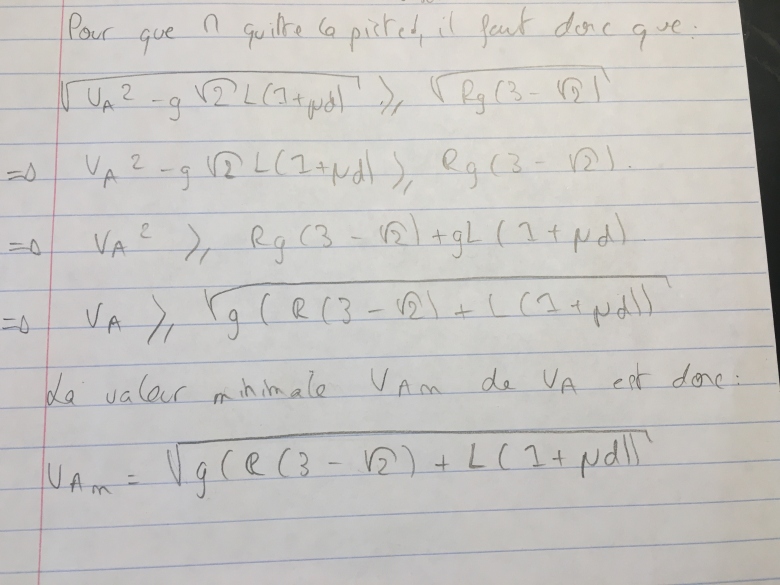 Pour que M quitte la piste, il faut donc que :
√(V_A² - g √2 L(1+μd)) ⩾ √(Rg(3 - √2))
⇒ V_A² - g √2 L(1+μd) ⩾ Rg(3 - √2).
⇒ V_A² ⩾ Rg(3 - √2) + gL(1 + μd)
⇒ V_A ⩾ √(g(R(3 - √2) + L(1 + μd)))
La valeur minimale V_Am de V_A est donc :
V_Am = √(g(R(3 - √2) + L(1 + μd)))